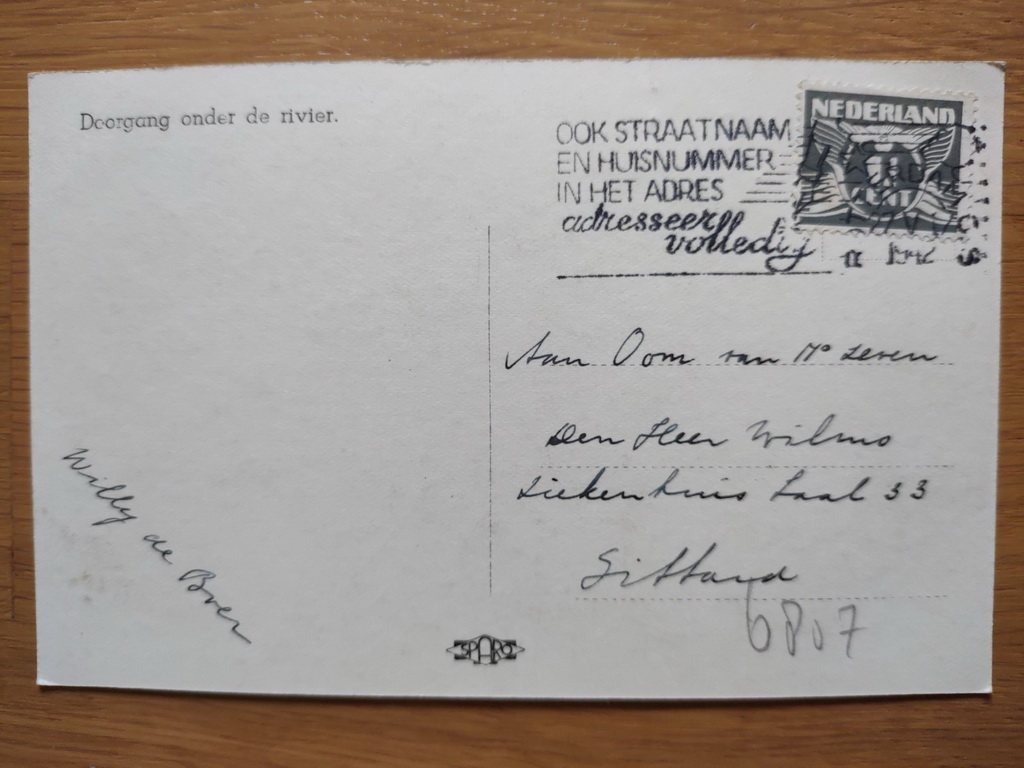 Doorgang onder de rivier.
OOK STRAATNAAM
EN HUISNUMMER
IN HET ADRES
adresseer
volledig
NEDERLAND
1942
Aan Oom van
Den Heer Wilms
Ziekenhuis Zaal 33
Sittard
6807
Willy de Boer
SPARO